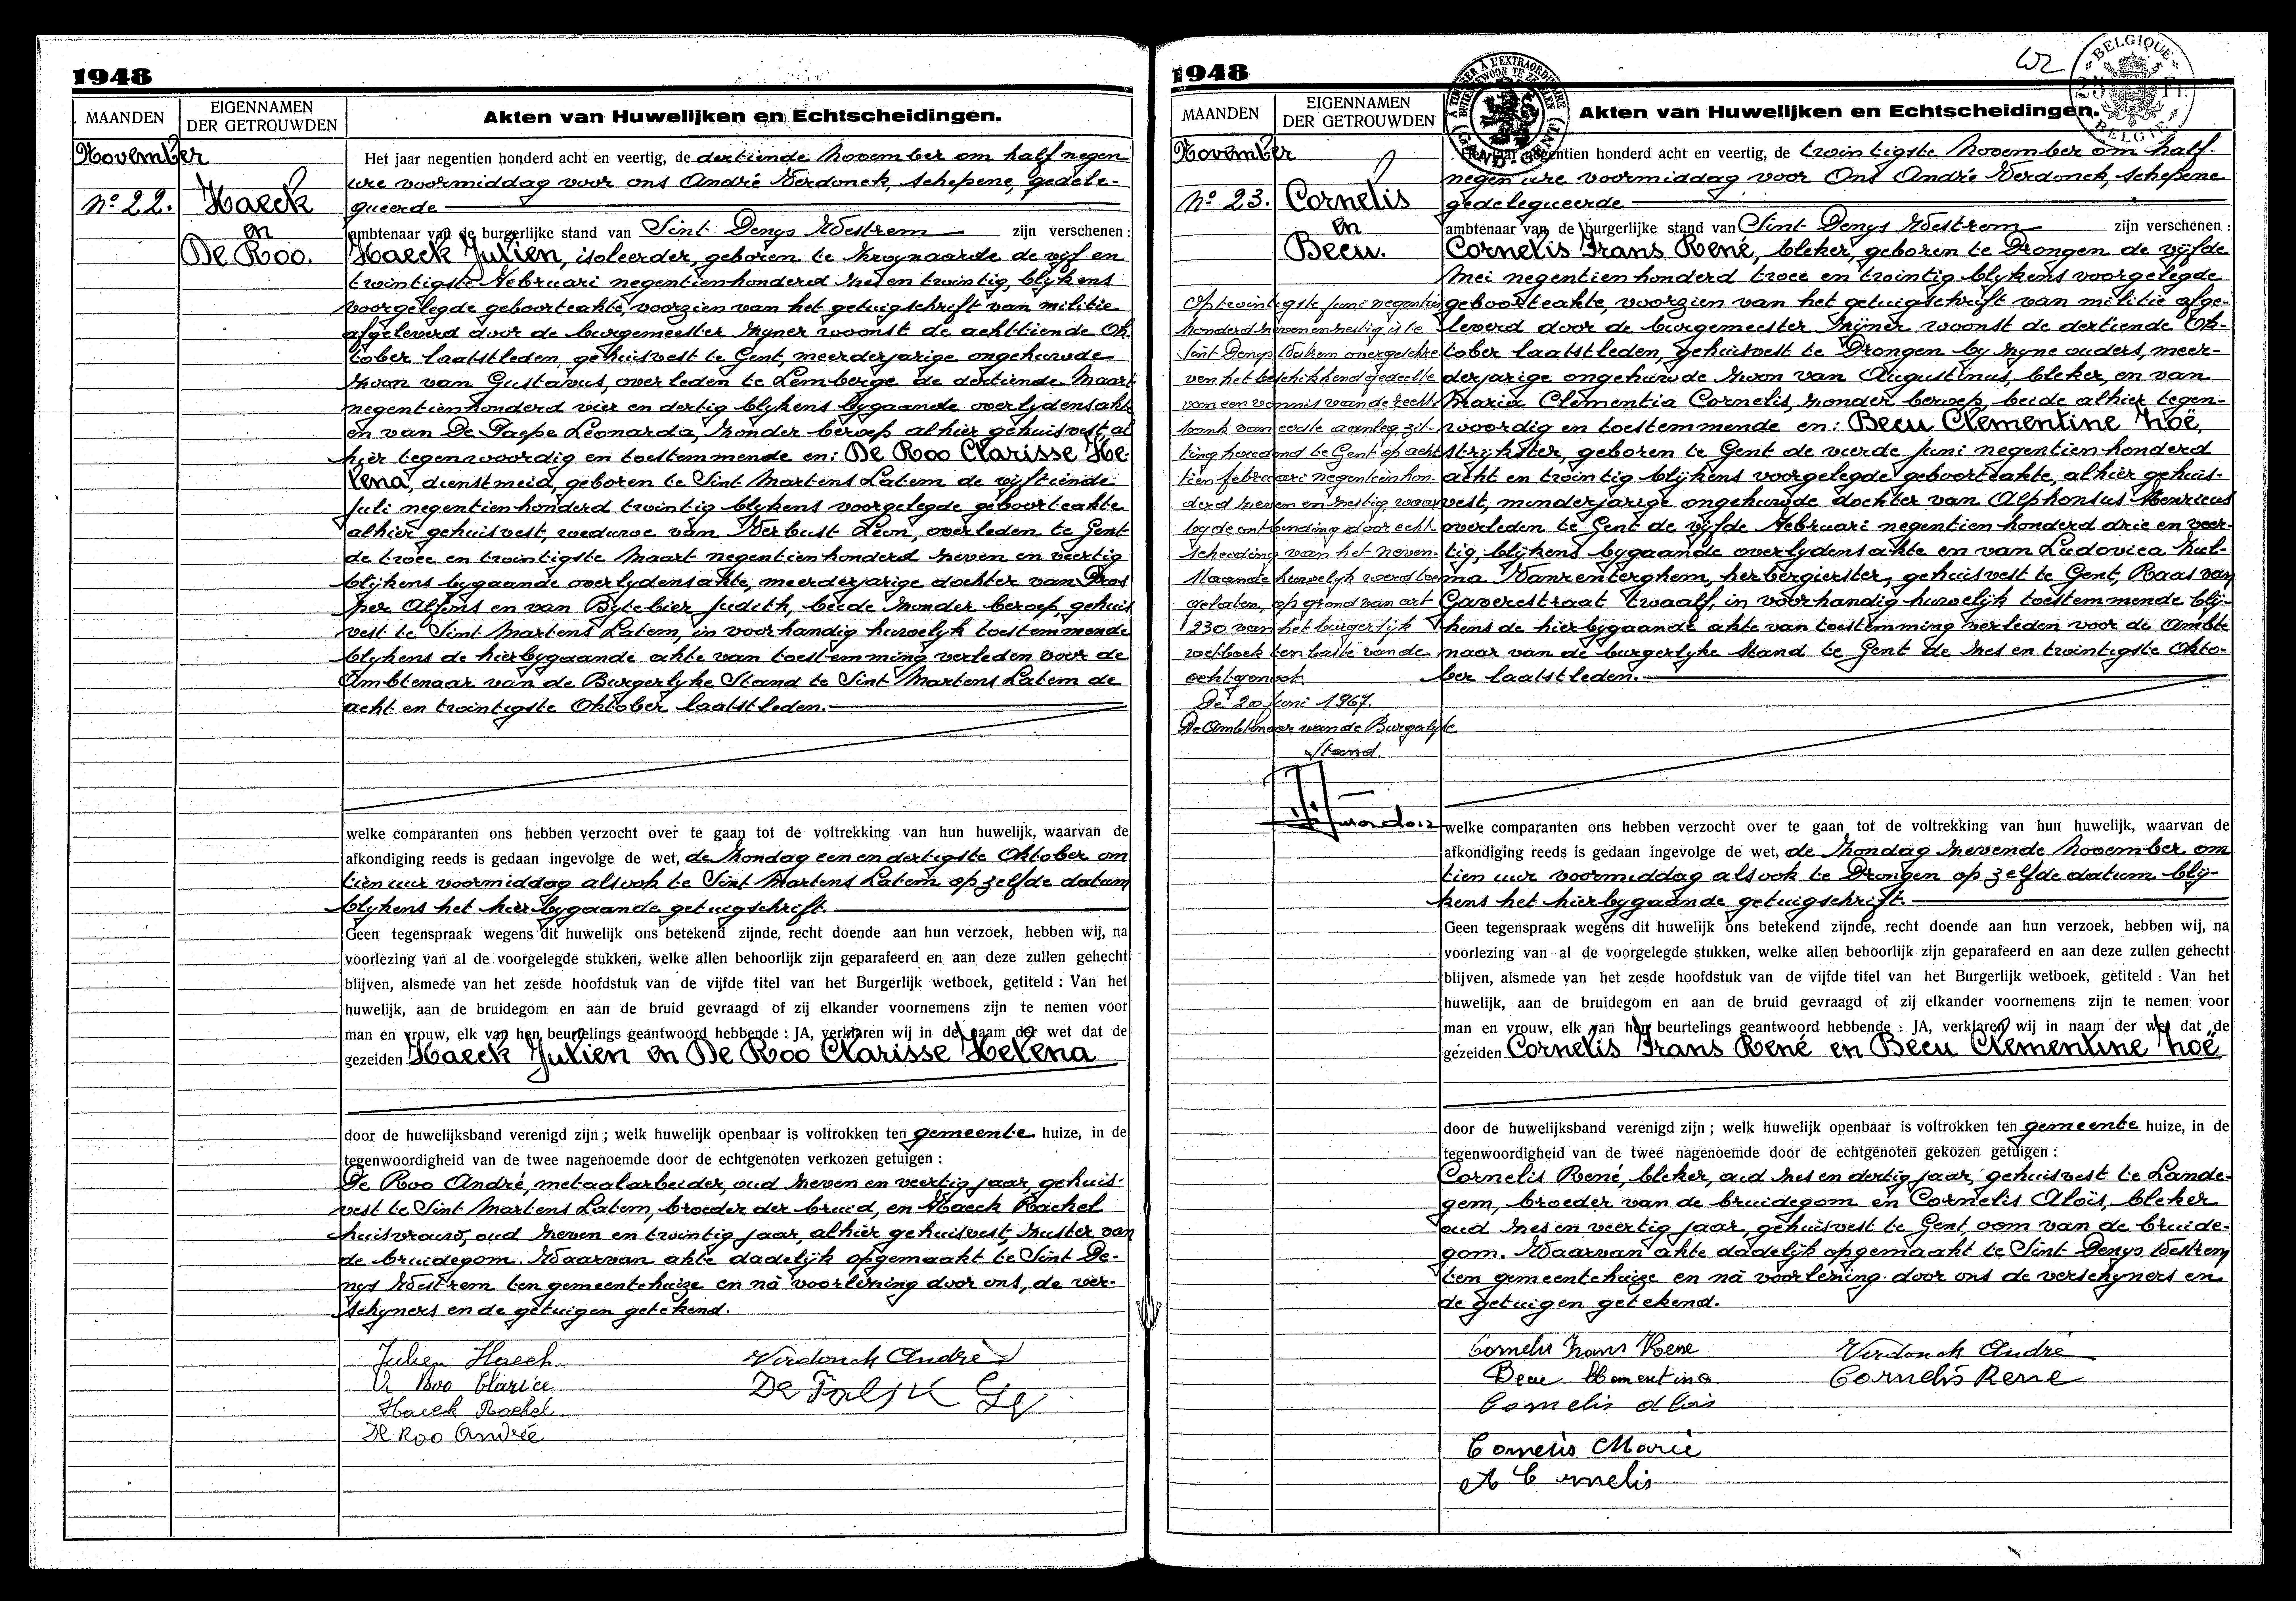 1948
MAANDEN
EIGENNAMEN
DER GETROUWDEN
Akten van Huwelijken en Echtscheidingen.
November
No 22.
Haeck
en
De Roo.
Het jaar negentien honderd acht en veertig, de dertiende November om half negen
ure voormiddag voor ons André Verdonck, schepene, gedele-
gueerde
ambtenaar van de burgerlijke stand van Sint Denys Westrem zijn verschenen :
Haeck Julien, isoleerder, geboren te Zwynaarde de vijf en
twintigste Februari negentienhonderd zes en twintig, blykens
voorgelegde geboorteakte, voorzien van het getuigschrift van militie
afgeleverd door de burgemeester zyner woonst de achttiende Ok
tober laatstleden, gehuisvest te Gent, meerderjarige ongehuwde
zoon van Gustavus, overleden te Lemberge de dertiende Maart
negentienhonderd vier en dertig blykens bygaande overlydensakte
en van De Paepe Leonarda, zonder beroep alhier gehuisvest al
hier tegenwoordig en toestemmende en: De Roo Clarisse He-
lena, dienstmeid, geboren te Sint Martens Latem de vijftiende
Juli negentienhonderd twintig blykens voorgelegde geboorteakte
alhier gehuisvest, weduwe van Verbust Leon, overleden te Gent
de twee en twintigste Maart negentienhonderd zeven en veertig
blijkens bygaande overlydensakte, meerderjarige dochter van Pros
per Alfons en van Bytebier Judith, beide zonder beroep, gehuis
vest te Sint Martens Latem, in voorhandig huwelyk toestemmende
blykens de hierbygaande akte van toestemming verleden voor de
Ambtenaar van de Burgerlyke Stand te Sint Martens Latem de
acht en twintigste Oktober laatstleden.
welke comparanten ons hebben verzocht over te gaan tot de voltrekking van hun huwelijk, waarvan de
afkondiging reeds is gedaan ingevolge de wet, de zondag een en dertigste Oktober om
tien uur voormiddag alsook te Sint Martens Latem op zelfde datum
blykens het hierbygaande getuigschrift.
Geen tegenspraak wegens dit huwelijk ons betekend zijnde, recht doende aan hun verzoek, hebben wij, na
voorlezing van al de voorgelegde stukken, welke allen behoorlijk zijn geparafeerd en aan deze zullen gehecht
blijven, alsmede van het zesde hoofdstuk van de vijfde titel van het Burgerlijk wetboek, getiteld : Van het
huwelijk, aan de bruidegom en aan de bruid gevraagd of zij elkander voornemens zijn te nemen voor
man en vrouw, elk van hen beurtelings geantwoord hebbende : JA, verklaren wij in de naam der wet dat de
gezeiden Haeck Julien en De Roo Clarisse Helena
door de huwelijksband verenigd zijn ; welk huwelijk openbaar is voltrokken ten gemeente huize, in de
tegenwoordigheid van de twee nagenoemde door de echtgenoten verkozen getuigen :
De Roo André, metaalarbeider, oud zeven en veertig jaar, gehuis-
vest te Sint Martens Latem, broeder der bruid, en Haeck Rachel
huisvrouw, oud zeven en twintig jaar, alhier gehuisvest, zuster van
de bruidegom. Waarvan akte dadelijk opgemaakt te Sint De-
nys Westrem ten gemeentehuize en nà voorlezing door ons, de ver-
schyners en de getuigen getekend.
Julien Haeck
Verdonck André
De Roo Clarice
Haeck Rachel
De Roo Andrée
1948
BELGIQUE
BELGIË
MAANDEN
EIGENNAMEN
DER GETROUWDEN
Akten van Huwelijken en Echtscheidingen.
November
No 23.
Cornelis
en
Beeu.
Het jaar negentien honderd acht en veertig, de twintigste November om half
negen ure voormiddag voor Ons André Verdonck, schepene
gedelegueerde
ambtenaar van de burgerlijke stand van Sint Denys Westrem zijn verschenen :
Cornelis Frans René, bleker, geboren te Drongen de vijfde
Mei negentienhonderd twee en twintig blykens voorgelegde
geboorteakte, voorzien van het getuigschrift van militie afge-
leverd door de burgemeester zijner woonst de dertiende Ok-
tober laatstleden, gehuisvest te Drongen by zyne ouders, meer-
derjarige ongehuwde zoon van Augustinus, bleker, en van
Maria Clementia Cornelis, zonder beroep, beide alhier tegen-
woordig en toestemmende en: Beeu Clementine Zoë,
strijkster, geboren te Gent de vierde Juni negentienhonderd
acht en twintig blijkens voorgelegde geboorteakte, alhier gehuis-
vest, minderjarige ongehuwde dochter van Alphonsus Henricus
overleden te Gent de vijfde Februari negentien honderd drie en veer-
tig, blijkens bygaande overlydensakte en van Ludovica Zul-
ma Vanrenterghem, herbergierster, gehuisvest te Gent, Raas van
Gaverestraat twaalf, in voorhandig huwelijk toestemmende blij-
kens de hierbygaande akte van toestemming verleden voor de Ambte
naar van de burgerlyke stand te Gent de zes en twintigste Okto-
ber laatstleden.
Op twintigste juni negentien
honderd zevenenzestig is te
Sint Denys Westrem overgeschre
ven het beschikkend gedeelte
van een vonnis van de recht-
bank van eerste aanleg, zit-
ting houdend te Gent op acht
tien februari negentienhon-
derd zeven en zestig waar
by de ontbinding door echt-
scheiding van het neven-
staande huwelyk werd toe
gelaten, op grond van art
230 van het burgerlijk
wetboek ten laste van de
echtgenoot.
De 20 juni 1967.
De Ambtenaar van de Burgerlyke
Stand.
welke comparanten ons hebben verzocht over te gaan tot de voltrekking van hun huwelijk, waarvan de
afkondiging reeds is gedaan ingevolge de wet, de zondag zevende November om
tien uur voormiddag alsook te Drongen op zelfde datum blij-
kens het hierbygaande getuigschrift.
Geen tegenspraak wegens dit huwelijk ons betekend zijnde, recht doende aan hun verzoek, hebben wij, na
voorlezing van al de voorgelegde stukken, welke allen behoorlijk zijn geparafeerd en aan deze zullen gehecht
blijven, alsmede van het zesde hoofdstuk van de vijfde titel van het Burgerlijk wetboek, getiteld : Van het
huwelijk, aan de bruidegom en aan de bruid gevraagd of zij elkander voornemens zijn te nemen voor
man en vrouw, elk van hen beurtelings geantwoord hebbende : JA, verklaren wij in naam der wet dat de
gezeiden Cornelis Frans René en Beeu Clementine Zoë
door de huwelijksband verenigd zijn ; welk huwelijk openbaar is voltrokken ten gemeente huize, in de
tegenwoordigheid van de twee nagenoemde door de echtgenoten gekozen getuigen :
Cornelis René, bleker, oud zes en dertig jaar, gehuisvest te Lande-
gem, broeder van de bruidegom en Cornelis Aloïs, bleker
oud zes en veertig jaar, gehuisvest te Gent, oom van de bruide-
gom. Waarvan akte dadelijk opgemaakt te Sint Denys Westrem
ten gemeentehuize en nà voorlezing door ons de verschyners en
de getuigen getekend.
Cornelis Frans Rene
Verdonck André
Beeu Clementine
Cornelis Rene
Cornelis Aloïs
Cornelis Marie
A Cornelis